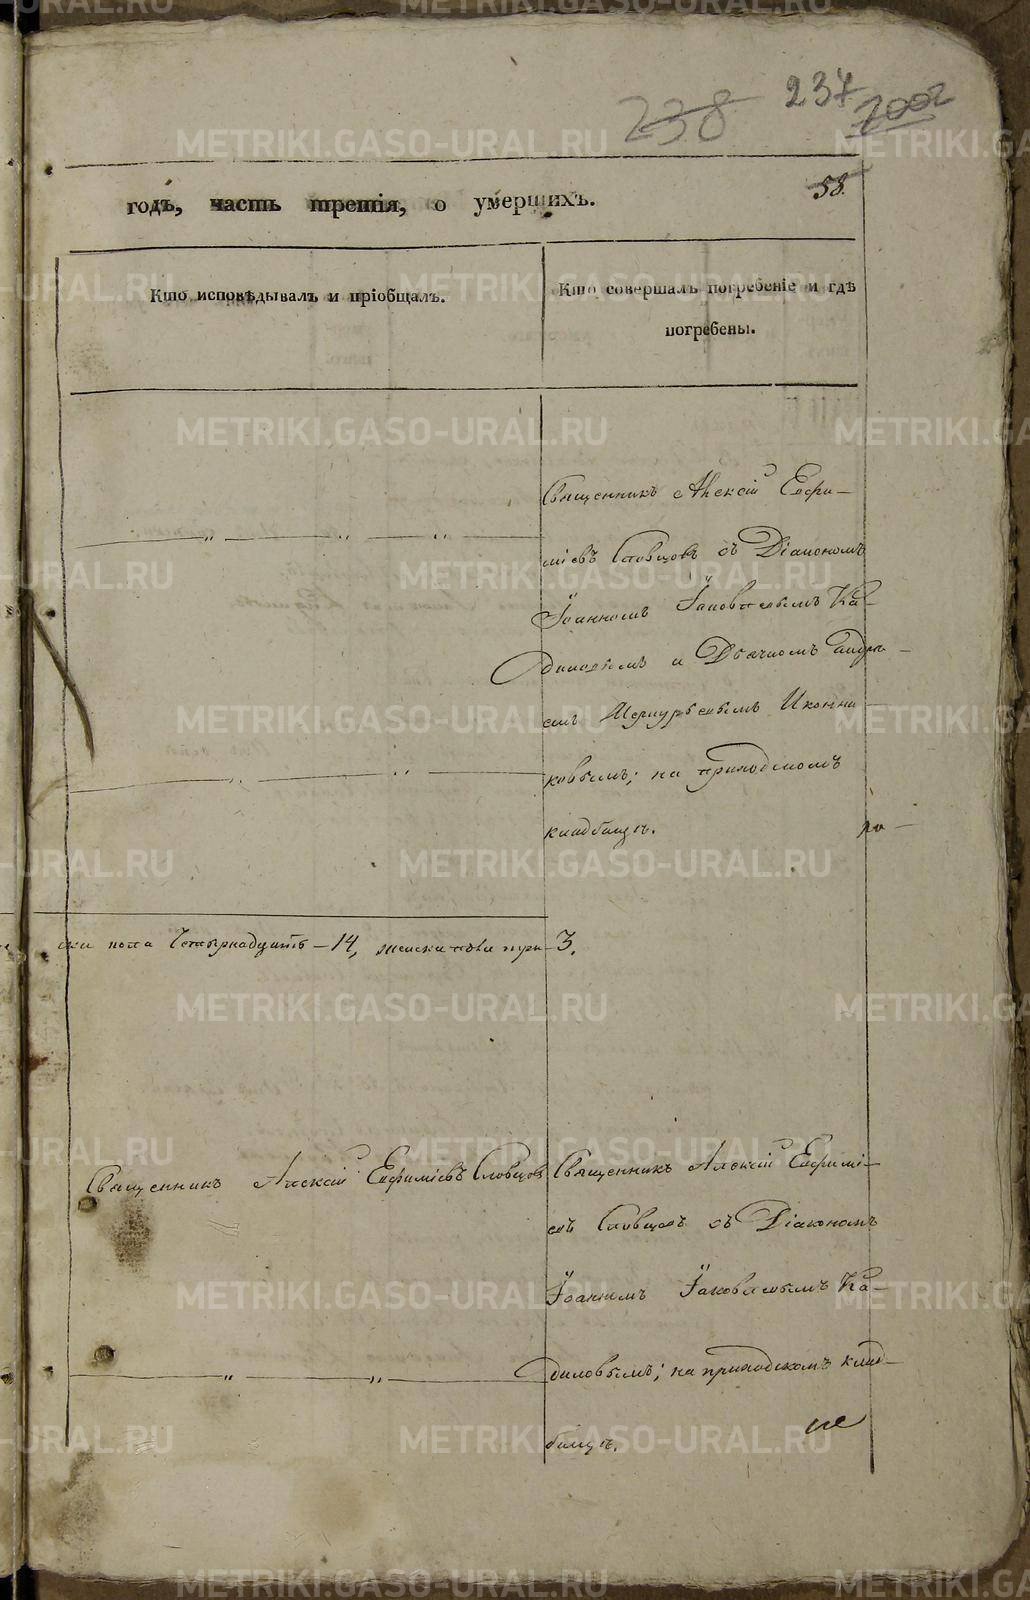 238 237 7002
58.
годъ, часть третія, о умершихъ.
Кто исповѣдывалъ и пріобщалъ.
Кто совершалъ погребеніе и гдѣ
погребены.
Священникъ Алексій Евфи-
міевъ Словцовъ съ Діакономъ
Іоанномъ Іаковлевымъ Ка-
диловымъ и Дьячкомъ Андре-
емъ Меркурьевымъ Иконни-
ковымъ; на приходскомъ
кладбищѣ.
ска пола Четырнадцать – 14, женска пола три – 3.
Священникъ Алексій Евфиміевъ Словцовъ
Священникъ Алексій Евфимі-
евъ Словцовъ съ Діакономъ
Іоанномъ Іаковлевымъ Ка-
диловымъ; на приходскомъ клад-
бищѣ.
METRIKI.GASO-URAL.RU